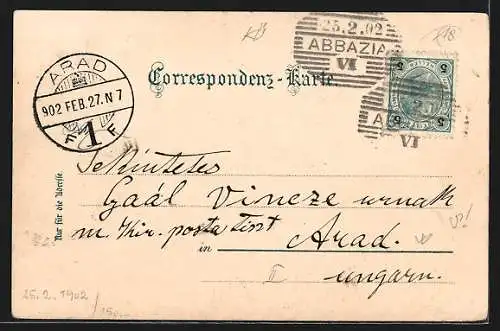 25.2.02
ABBAZIA
VI
ARAD
902 FEB.27.N 7
1
F F
Correspondenz-Karte
5 5
5 5
A
VI
Nur für die Adresse.
Tekintetes
Gaál Vincze urnak
m. kir. posta tiszt
in Arad.
II
ungarn.
25.2.1902